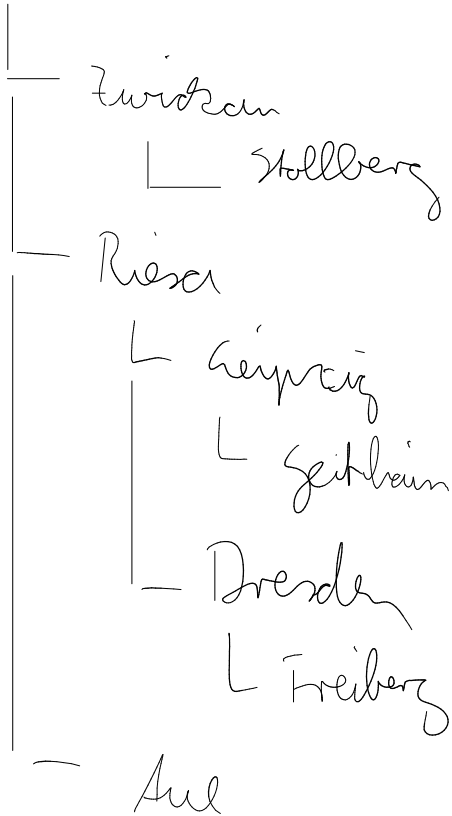 Zwickau
Stollberg
Riesa
Leipzig
Geithain
Dresden
Freiberg
Aue